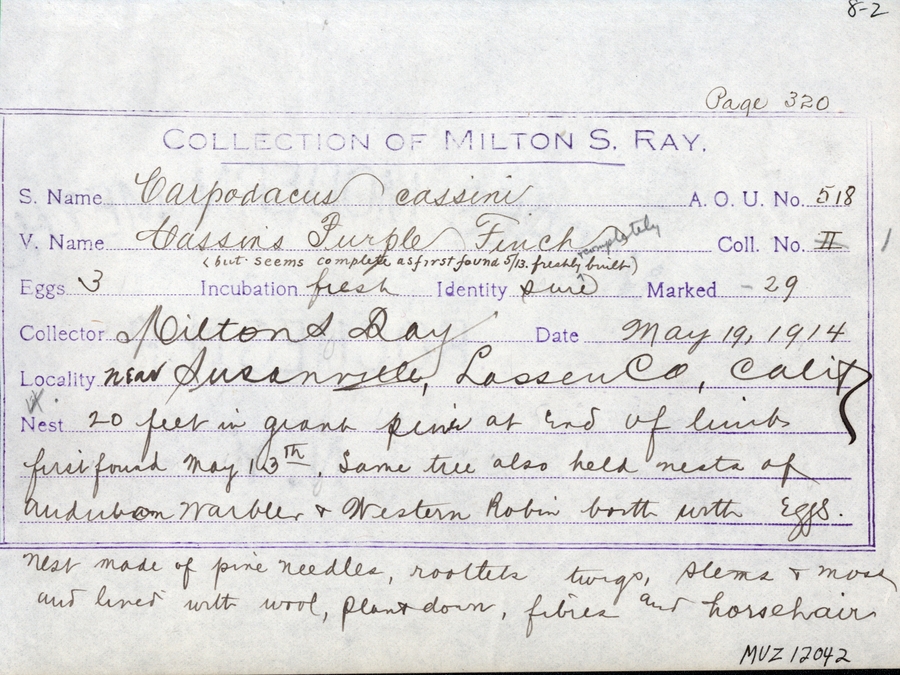 8-2
Page 320
COLLECTION OF MILTON S. RAY.
S. Name Carpodacus cassini A. O. U. No. 518
V. Name Cassins Purple Finch Coll. No. II 1
completely
(but seems complete as first found 5/13. freshly built)
Eggs 3 Incubation fresh Identity sure Marked - 29
Collector Milton S Ray Date May 19, 1914
Locality near Susanville, Lassen Co, Calif
Nest 20 feet in giant pine at end of limb
first found May 13th. Same tree also held nests of
Audubon Warbler & Western Robin both with Eggs.
Nest made of pine needles, rootlets twigs, stems & moss
and lined with wool, plant down, fibres and horsehair
MVZ 12042